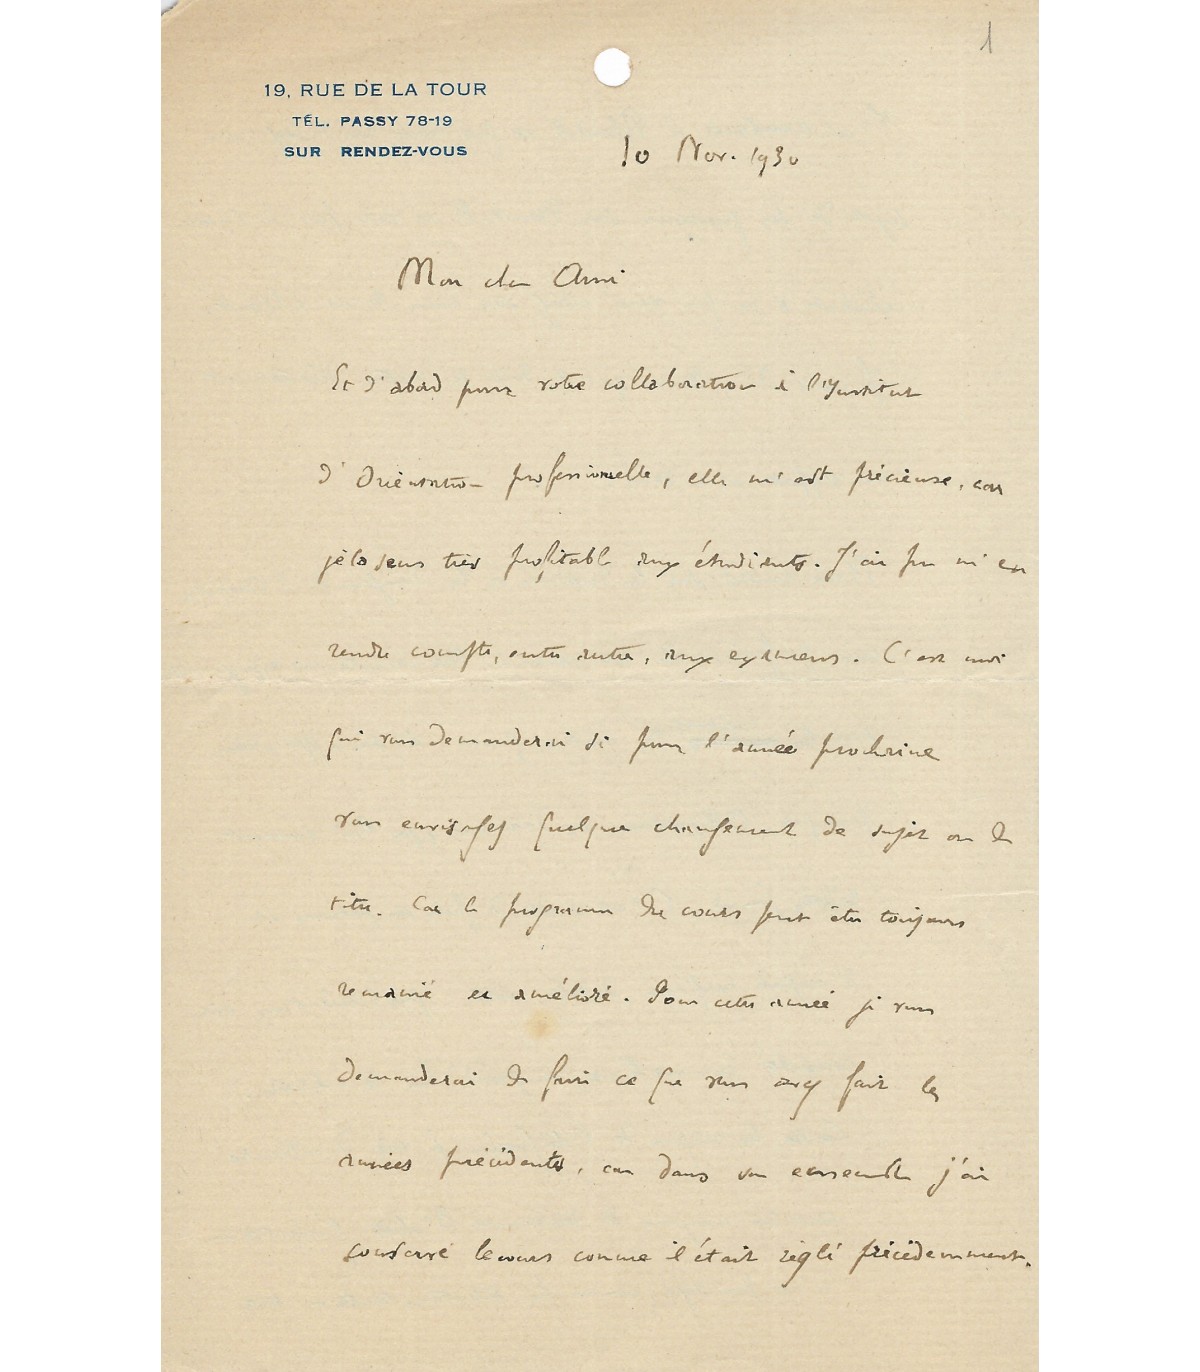 1
19, RUE DE LA TOUR
TÉL. PASSY 78-19
SUR RENDEZ-VOUS
10 Nov. 1930
Mon cher Ami
Et d'abord pour votre collaboration à l'Institut
d'Orientation professionnelle, elle m'est précieuse, car
je la sens très profitable aux étudiants. J'ai pu m'en
rendre compte, entre autre, aux examens. C'est moi
qui vous demanderai si pour l'année prochaine
vous envisagez quelque changement de sujet ou de
titre. Car le programme du cours peut être toujours
remanié et amélioré. Pour cette année je vous
demanderai de faire ce que vous avez fait les
années précédentes, car dans son ensemble j'ai
conservé le cours comme il était réglé précédemment.